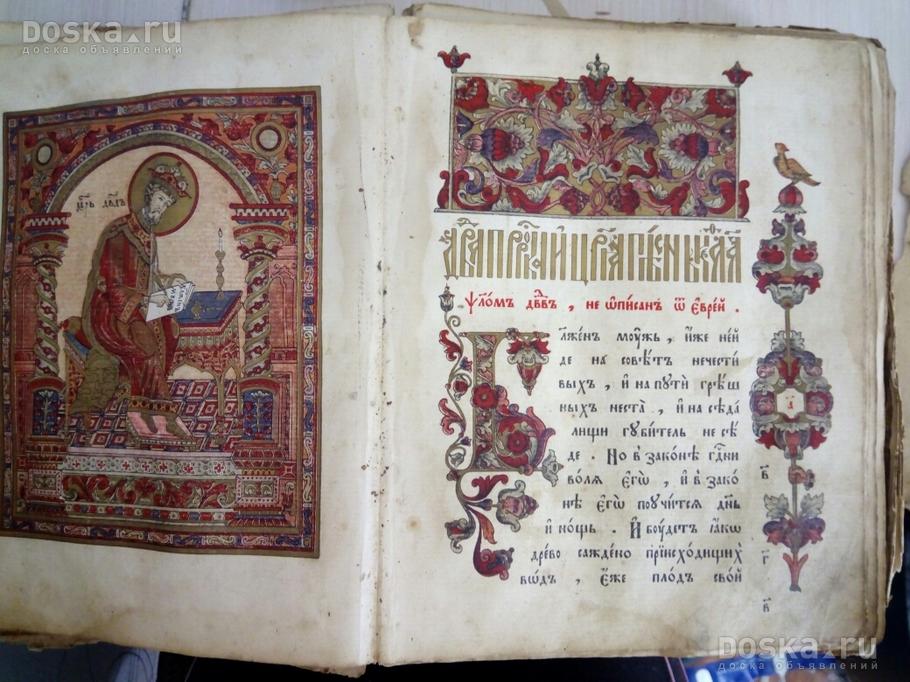 DOSKA.ru
доска объявлений
DOSKA.ru
доска объявлений
цр҃ь дв҃дъ
ѱл҃омъ дв҃дъ , не ѡписан ѿ еврей .
Бл҃жен моужь , иже неи
де на совѣт нечести
выхъ , и на пути грѣш
ныхъ неста , и на сѣда
лищи губитель не сѣ
де . Но в законѣ гд҃ни
воля егѡ , и в зако
нѣ егѡ поучится дн҃ь
и нощь . И боудетъ ꙗкѡ
древо саждено приисходищихъ
водъ , еже плодъ свой
а҃
в҃
г҃
в҃
DOSKA.ru
доска объявлений